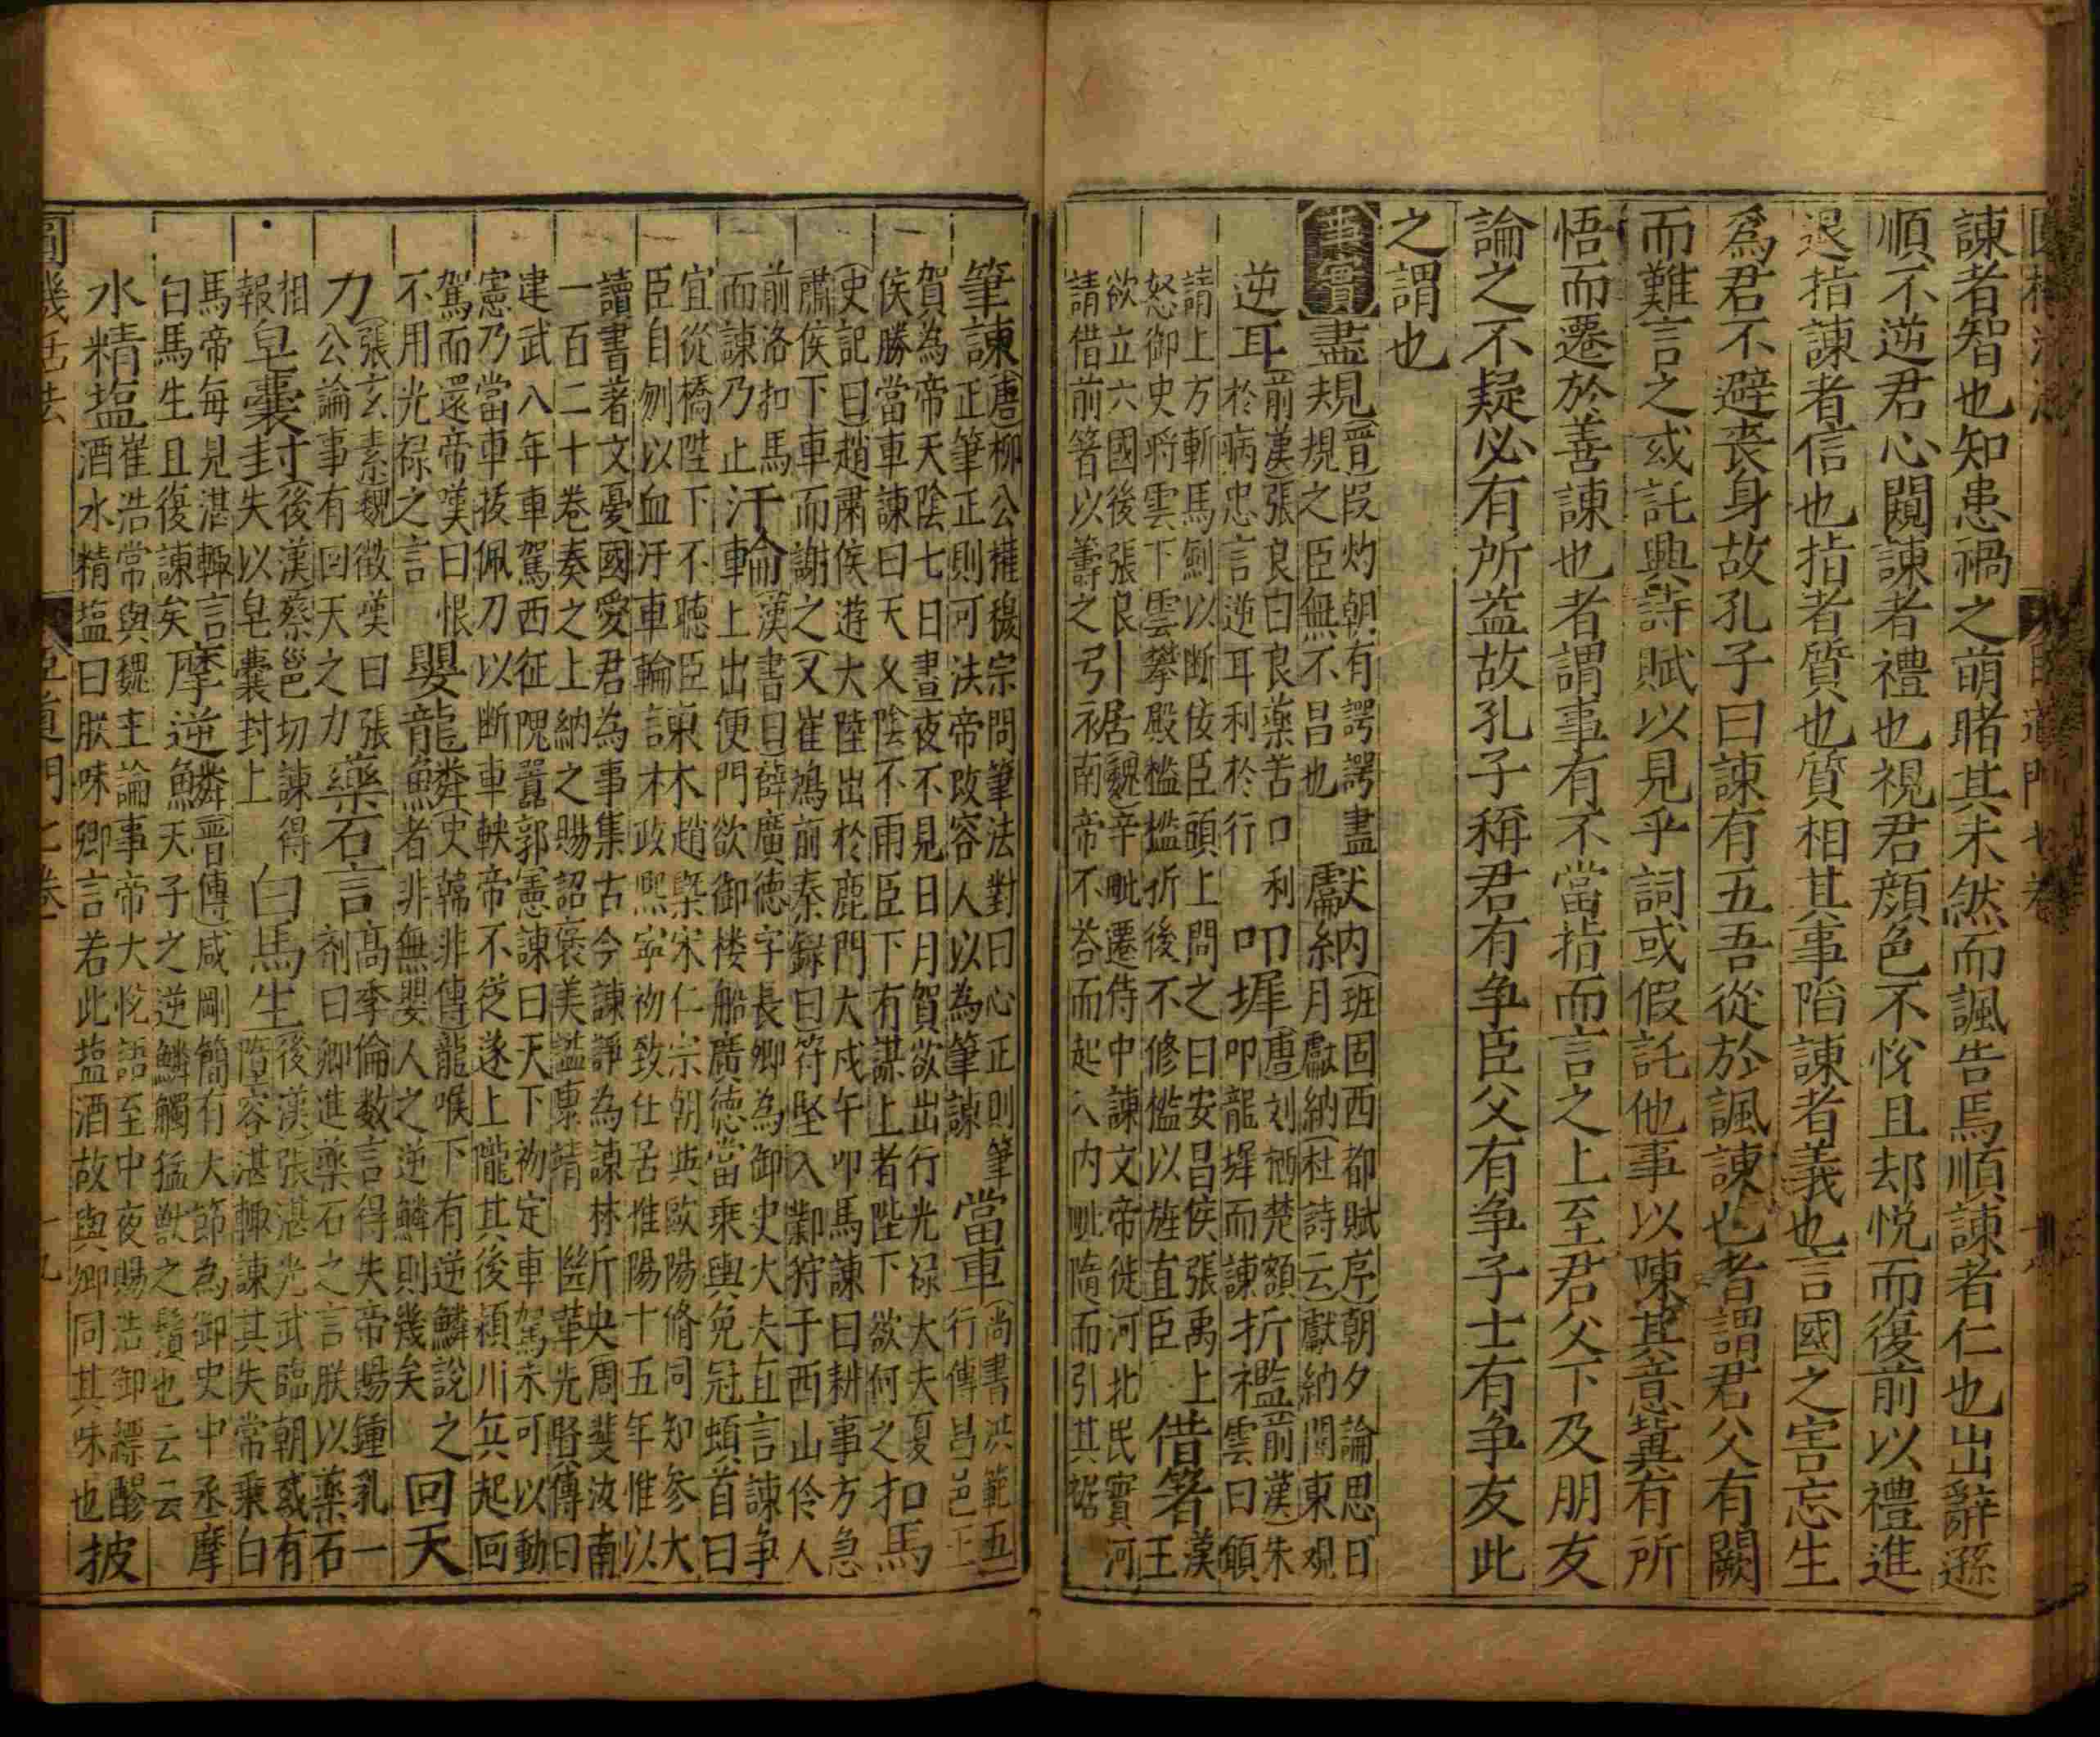 諫者智也知患禍之萌睹其未然而諷告焉順諫者仁也出辭遜
順不逆君心闚諫者禮也視君顔色不悅且却悅而復前以禮進
退指諫者信也指者質也質相其事陷諫者義也言國之害忘生
爲君不避喪身故孔子曰諫有五吾從於諷諫也者謂君父有闕
而難言之或託興詩賦以見乎詞或假託他事以陳其意冀有所
悟而遷於善諫也者謂事有不當指而言之上至君父下及朋友
論之不疑必有所益故孔子稱君有争臣父有争子士有争友此
之謂也
事實
盡規
晋段灼朝有諤諤盡
規之臣無不昌也
獻納
班固西都賦序朝夕論思日
月獻納杜詩云獻納開東觀
逆耳
前漢張良曰良藥苦口利
於病忠言逆耳利於行
叩墀
唐刘栖楚額
叩龍墀而諫
折檻
前漢朱
雲曰願
請上方斬馬劍以断佞臣頭上問之曰安昌侯張禹上
怒御史将雲下雲攀殿檻檻折後不修檻以旌直臣
借箸
漢王
欲立六國後張良
請借前箸以籌之
引裾
魏辛毗遷侍中諫文帝徙河北民實河
南帝不荅而起入内毗隨而引其裾
筆諫
唐柳公權穆宗問筆法對曰心正則筆
正筆正則可法帝改容人以為筆諫
當車
尚書洪範五
行傳昌邑王
賀為帝天陰七日晝夜不見日月賀欲出行光禄大夫夏
侯勝當車諫曰天乆陰不雨臣下有謀上者陛下欲何之
扣馬
史記曰趙肅侯遊大陸出於鹿門大戍午叩馬諫曰耕事方急
肅侯下車而謝之又崔鴻前秦録曰符堅入鄴狩于西山伶人
前洛扣馬
而諫乃止
汙輪
漢書曰薛廣德字長卿為御史大夫直言諫争
車上出便門欲御楼船廣德當乘輿免冠頓首曰
宜從橋陛下不聴臣
臣自刎以血汙車輪
諫木
趙槩宋仁宗朝與歐陽脩同知参大
政熈寧初致仕居惟陽十五年惟以
讀書著文憂國愛君為事集古今諫諍為諫林
一百二十卷奏之上納之賜詔褒美謚康靖
斤央周斐汝南
先賢傳曰
建武八年車駕西征隗囂郭憲諫曰天下初定車駕未可以動
憲乃當車拔佩刀以断車軼帝不從遂上隴其後穎川兵起回
駕而還帝嘆曰恨
不用光禄之言
嬰龍鱗
史韓非傳龍喉下有逆鱗說之
者非無嬰人之逆鱗則幾矣
回天力
張玄素魏徵嘆曰張
公論事有回天之力
藥石言
高季倫数言得失帝賜鍾乳一
剤曰卿進藥石之言朕以藥石
相報
皂囊封
後漢蔡邕切諫得
失以皂囊封上
白馬生
後漢張湛光武臨朝或有
惰容湛輙諫其失常乘白
馬帝每見湛輙言
白馬生且復諫矣
摩逆鱗
晋傳咸剛簡有大節為御史中丞摩
天子之逆鱗觸猛獣之鬚也云云
水精塩
崔浩常與魏主論事帝大悅語至中夜賜浩御縹醪
酒水精塩曰朕味卿言若此塩酒故與卿同其味也
披